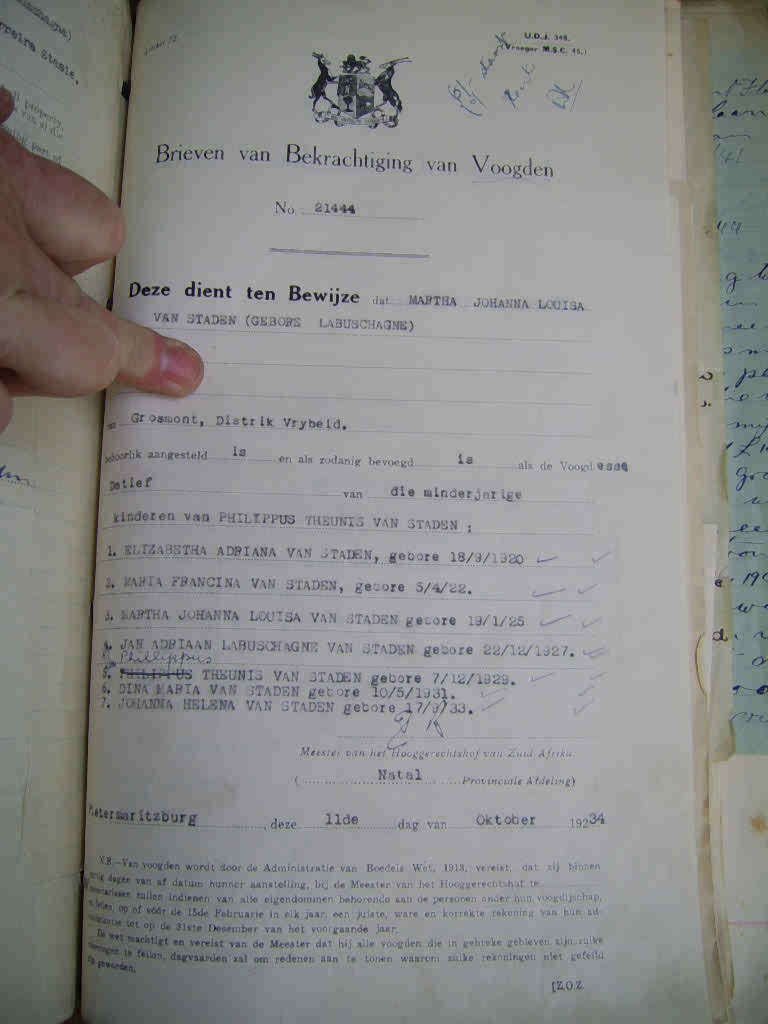 U.D.J. 348.
(Vroeger M.S.C. 45.)
Brieven van Bekrachtiging van Voogden
No. 21444
Deze dient ten Bewijze dat MARTHA JOHANNA LOUISA
VAN STADEN (GEBORE LABUSCHAGNE)
Grosmont, Distrik Vryheid.
behoorlijk aangesteld is en als zodanig bevoegd is als de Voogdesse
Datief van die minderjarige
kinderen van PHILIPPUS THEUNIS VAN STADEN ;
1. ELIZABETHA ADRIANA VAN STADEN, gebore 18/9/1920
2. MARIA FRANCINA VAN STADEN, gebore 5/4/22.
3. MARTHA JOHANNA LOUISA VAN STADEN gebore 19/1/25
4. JAN ADRIAAN LABUSCHAGNE VAN STADEN gebore 22/12/1927.
Phillippus
5. PHILIPPUS THEUNIS VAN STADEN gebore 7/12/1929.
6. DINA MARIA VAN STADEN gebore 10/5/1931.
7. JOHANNA HELENA VAN STADEN gebore 17/9/33.
Meester van het Hooggerechtshof van Zuid Afrika.
(Natal Provinciale Afdeling)
Pietermaritzburg, deze 11de dag van Oktober 19234
N.B.—Van voogden wordt door de Administratie van Boedels Wet, 1913, vereist, dat zij binnen
dertig dagen van af datum hunner aanstelling, bij de Meester van het Hooggerechtshof te
inventarissen zullen indienen van alle eigendommen behorende aan de personen onder hun voogdijschap,
en laten, op of vóór de 15de Februarie in elk jaar, een juiste, ware en korrekte rekening van hun ad-
ministratie tot op de 31ste Desember van het voorgaande jaar.
De wet machtigt en vereist van de Meester dat hij alle voogden die in gebreke gebleven zijn zulke
rekeningen te feilen, dagvaarden zal om redenen aan te tonen waarom zulke rekeningen niet gefeild
geworden.
[Z.O.Z.